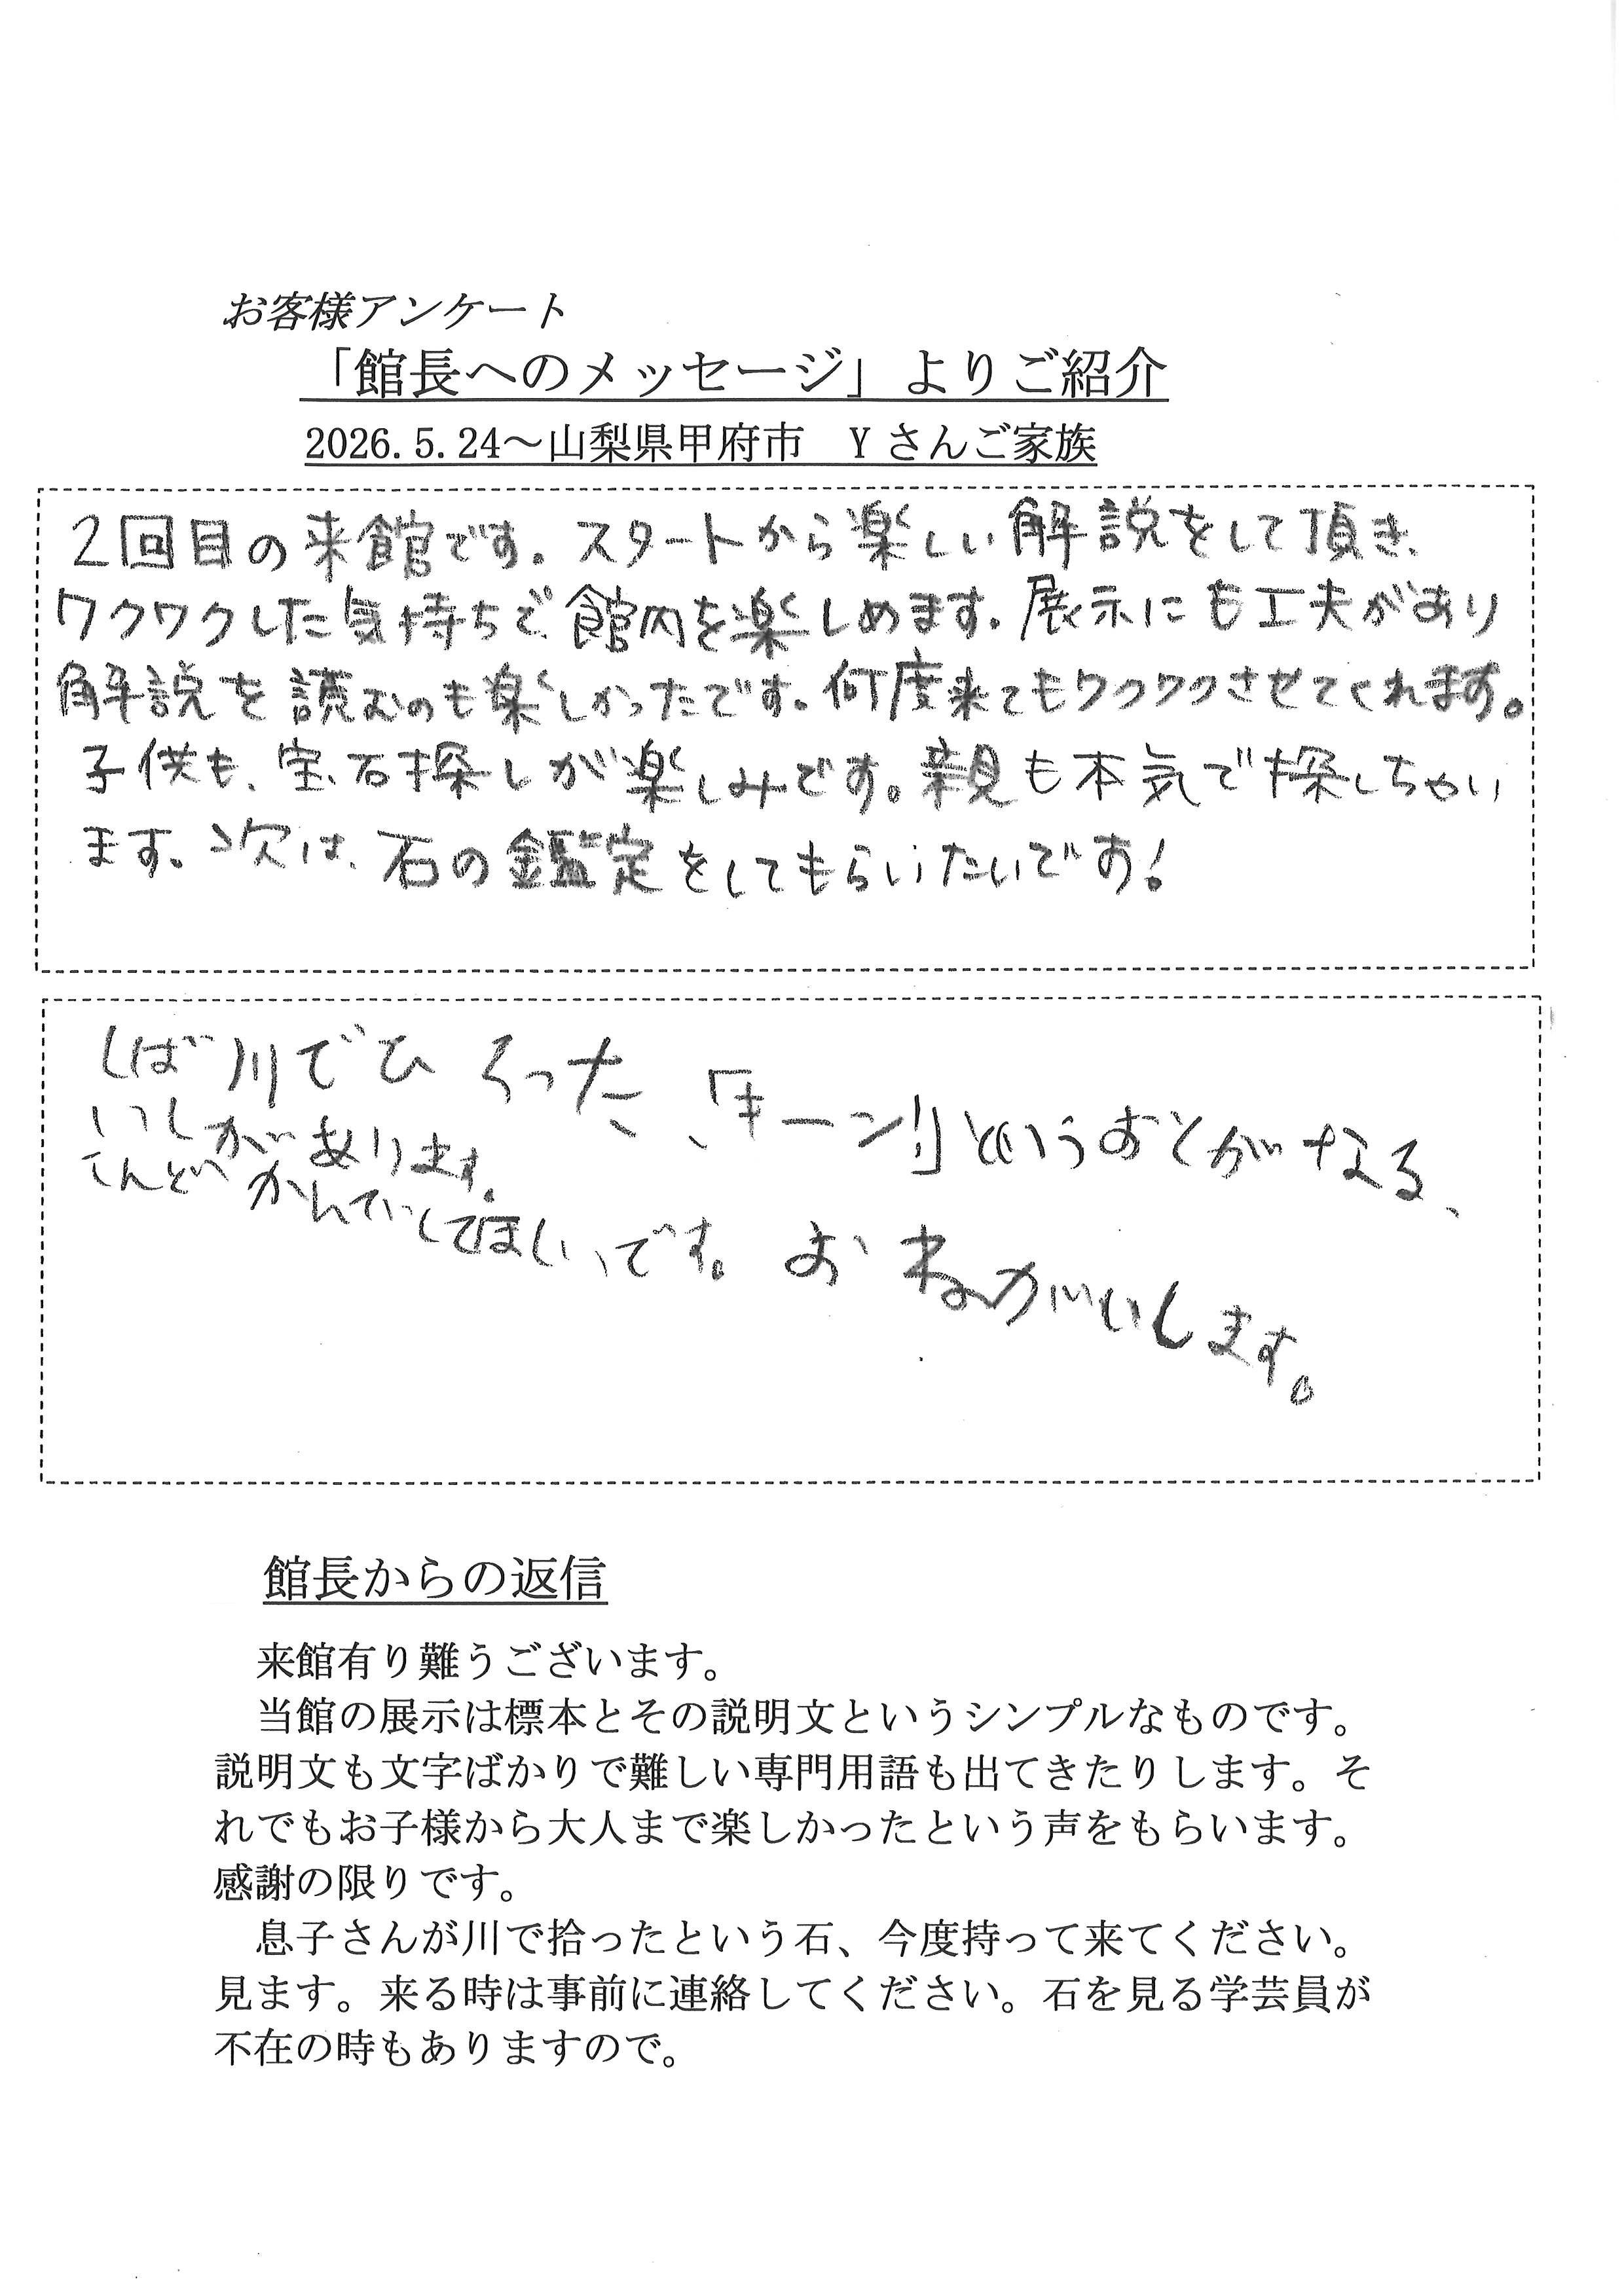 お客様アンケート
「館長へのメッセージ」よりご紹介
2026.5.24～山梨県甲府市　Yさんご家族
2回目の来館です。スタートから楽しい解説をして頂き、
ワクワクした気持ちで館内を楽しめます。展示にも工夫があり
解説を読むのも楽しかったです。何度来てもワクワクさせてくれます。
子供も、宝石探しが楽しみです。親も本気で探しちゃい
ます。次は、石の鑑定をしてもらいたいです!
しば川でひろった、「キーン!」というおとがなる、
いしがあります。
こんどかんていしてほしいです。おねがいします。
館長からの返信
来館有り難うございます。
当館の展示は標本とその説明文というシンプルなものです。
説明文も文字ばかりで難しい専門用語も出てきたりします。そ
れでもお子様から大人まで楽しかったという声をもらいます。
感謝の限りです。
息子さんが川で拾ったという石、今度持って来てください。
見ます。来る時は事前に連絡してください。石を見る学芸員が
不在の時もありますので。